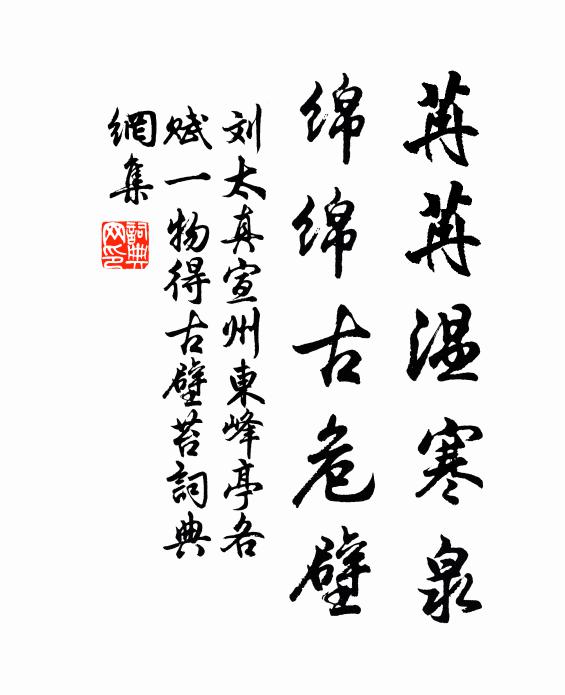 苒苒温寒泉
绵绵古危壁
刘太真宣州東峰亭各
赋一物得古壁苔詞典
網集
詞典
网印